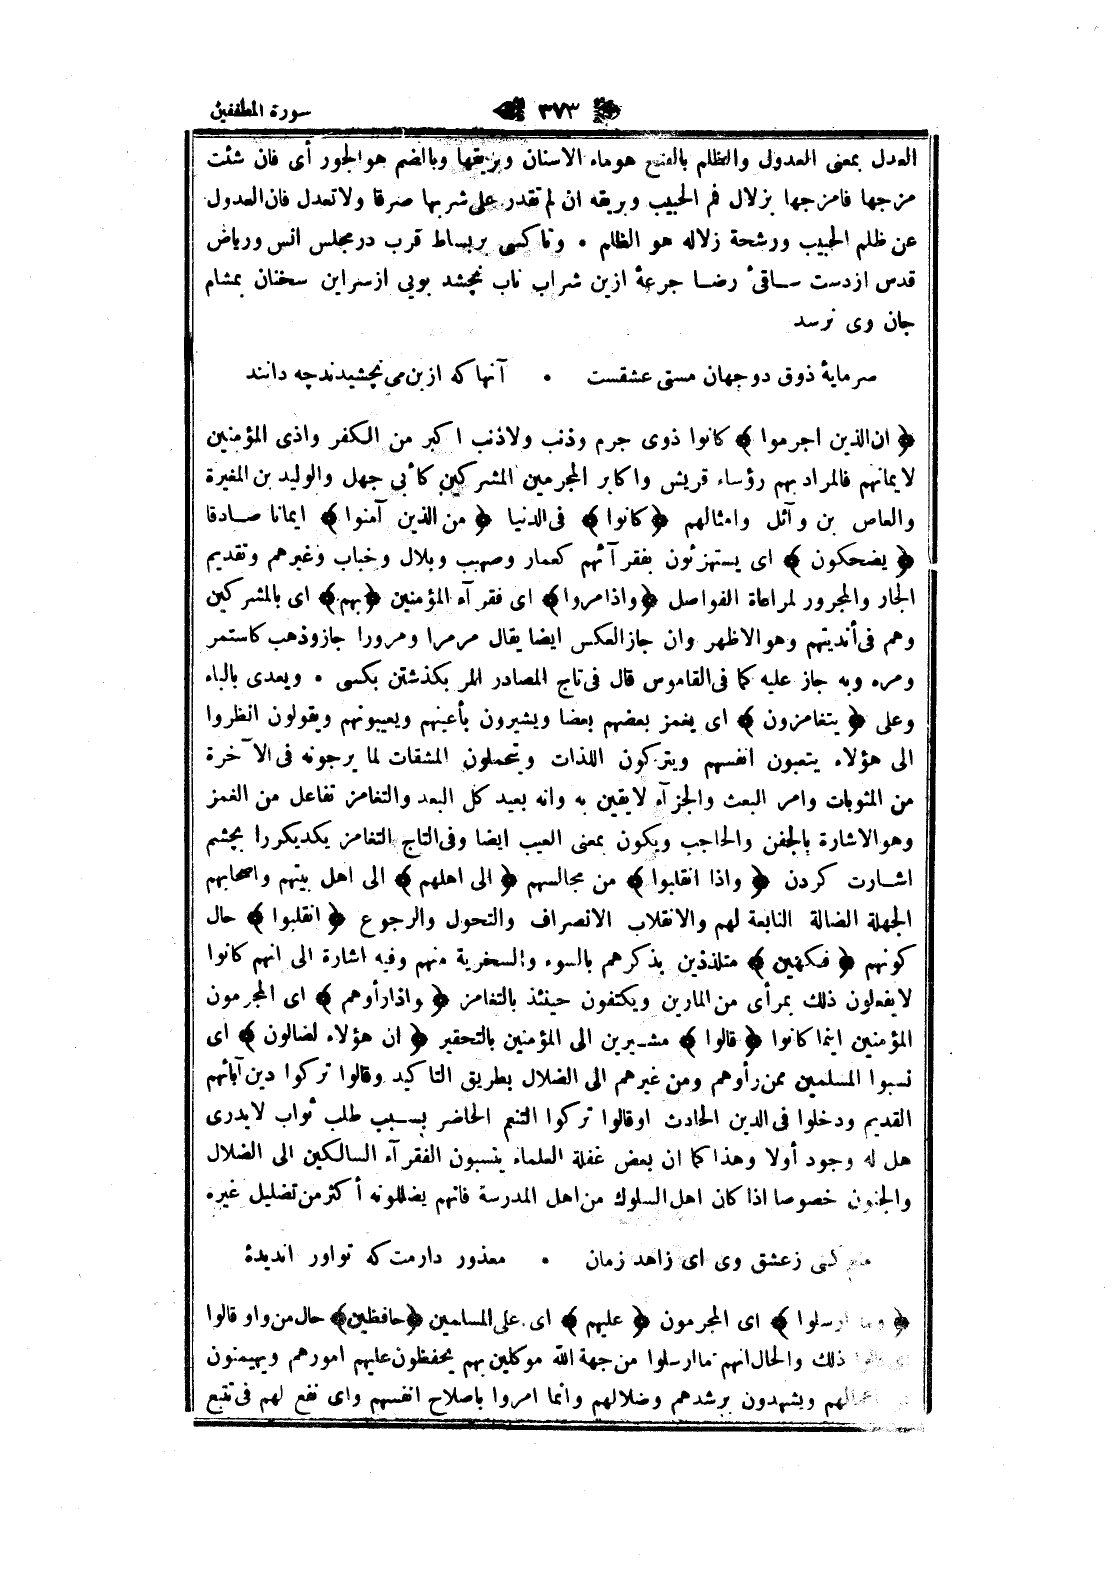 سورة المطففين ٣٧٣
العدل بمعنى العدول والظلم بالفتح هوماء الاسنان وبريقها وبالضم هوالجور أى فان شئت
مزجها فامزجها بزلال فم الحبيب وبريقه ان لم تقدر على شربها صرفا ولاتعدل فان العدول
عن ظلم الحبيب ورشحة زلاله هو الظلم • وتا كسى بربساط قرب درمجلس انس ورياض
قدس ازدست ساقىء رضا جرعهٔ ازين شراب ناب نچشد بويى ازسراين سخنان بمشام
جان وى نرسد
سرمايهٔ ذوق دوجهان مستى عشقست • آنها كه ازين مى نچشيدند چه دانند
﴿ ان الذين اجرموا ﴾ كانوا ذوى جرم وذنب ولاذنب اكبر من الكفر واذى المؤمنين
لايمانهم فالمراد بهم رؤساء قريش واكابر المجرمين المشركين كأبى جهل والوليد بن المغيرة
والعاص بن وآئل وامثالهم ﴿ كانوا ﴾ فى الدنيا ﴿ من الذين آمنوا ﴾ ايمانا صادقا
﴿ يضحكون ﴾ اى يستهزئون بفقرآئهم كعمار وصهيب وبلال وخباب وغيرهم وتقديم
الجار والمجرور لمراعاة الفواصل ﴿ واذامروا ﴾ اى فقرآء المؤمنين ﴿ بهم ﴾ اى بالمشركين
وهم فى أنديتهم وهوالاظهر وان جازالعكس ايضا يقال مرمرا ومرورا جازوذهب كاستمر
ومره وبه جاز عليه كما فى القاموس قال فى تاج المصادر المر بكذشتن بكسى • ويعدى بالباء
وعلى ﴿ يتغامزون ﴾ اى يغمز بعضهم بعضا ويشيرون بأعينهم ويعيبونهم ويقولون انظروا
الى هؤلاء يتعبون انفسهم ويتركون اللذات ويتحملون المشقات لما يرجونه فى الآخرة
من المثوبات وامر البعث والجزآء لايقين به وانه بعيد كل البعد والتغامز تفاعل من الغمز
وهوالاشارة بالجفن والحاجب ويكون بمعنى العيب ايضا وفى التاج التغامز يكديكررا بچشم
اشارت كردن ﴿ واذا انقلبوا ﴾ من مجالسهم ﴿ الى اهلهم ﴾ الى اهل بيتهم واصحابهم
الجهلة الضالة التابعة لهم والانقلاب الانصراف والتحول والرجوع ﴿ انقلبوا ﴾ حال
كونهم ﴿ فكهين ﴾ متلذذين بذكرهم بالسوء والسخرية منهم وفيه اشارة الى انهم كانوا
لايفعلون ذلك بمرأى من المارين ويكتفون حينئذ بالتغامز ﴿ واذارأوهم ﴾ اى المجرمون
المؤمنين اينما كانوا ﴿ قالوا ﴾ مشيرين الى المؤمنين بالتحقير ﴿ ان هؤلاء لضالون ﴾ اى
نسبوا المسلمين ممن رأوهم ومن غيرهم الى الضلال بطريق التأكيد وقالوا تركوا دين آبائهم
القديم ودخلوا فى الدين الحادث اوقالوا تركوا التنعم الحاضر بسبب طلب ثواب لايدرى
هل له وجود أولا وهذا كما ان بعض غفلة العلماء ينسبون الفقرآء السالكين الى الضلال
والجنون خصوصا اذا كان اهل السلوك من اهل المدرسة فانهم يضللونه أكثر من تضليل غيره
كنى زعشق وى اى زاهد زمان • معذور دارمت كه تواور انديدهٔ
﴿ وما ارسلوا ﴾ اى المجرمون ﴿ عليهم ﴾ اى على المسلمين ﴿ حافظين ﴾ حال من واو قالوا
ذلك والحال انهم ماارسلوا من جهة الله موكلين بهم يحفظون عليهم امورهم ويهيمنون
اعمالهم ويشهدون برشدهم وضلالهم وانما امروا باصلاح انفسهم واى نفع لهم فى تتبع